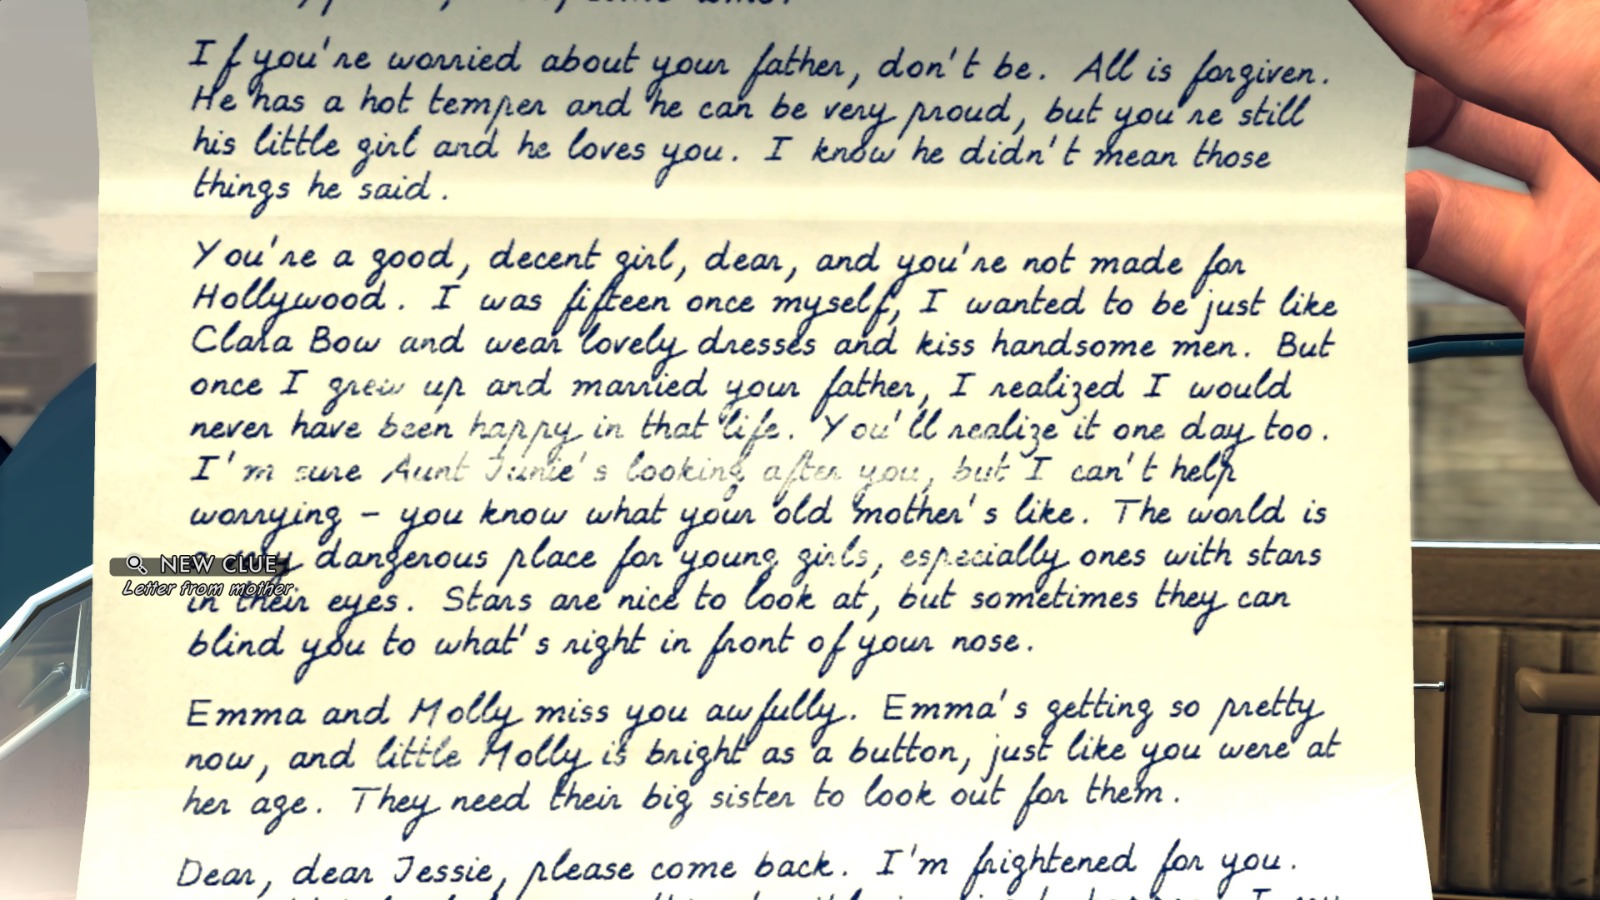 If you're worried about your father, don't be. All is forgiven.
He has a hot temper and he can be very proud, but you're still
his little girl and he loves you. I know he didn't mean those
things he said.
You're a good, decent girl, dear, and you're not made for
Hollywood. I was fifteen once myself, I wanted to be just like
Clara Bow and wear lovely dresses and kiss handsome men. But
once I grew up and married your father, I realized I would
never have been happy in that life. You'll realize it one day too.
I'm sure Aunt Junie's looking after you, but I can't help
worrying - you know what your old mother's like. The world is
dangerous place for young girls, especially ones with stars
NEW CLUE
Letter from mother
in their eyes. Stars are nice to look at, but sometimes they can
blind you to what's right in front of your nose.
Emma and Molly miss you awfully. Emma's getting so pretty
now, and little Molly is bright as a button, just like you were at
her age. They need their big sister to look out for them.
Dear, dear Jessie, please come back. I'm frightened for you.